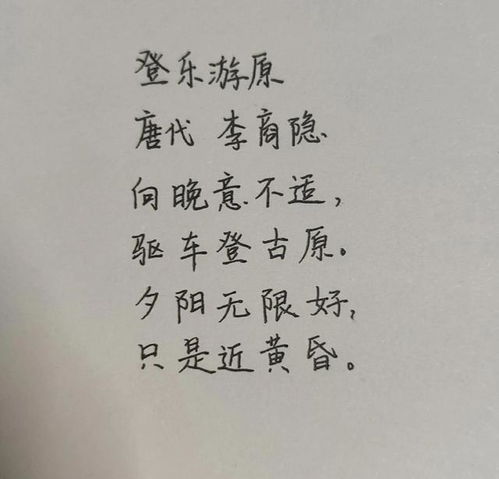 登乐游原
唐代 李商隐
向晚意不适，
驱车登古原。
夕阳无限好，
只是近黄昏。